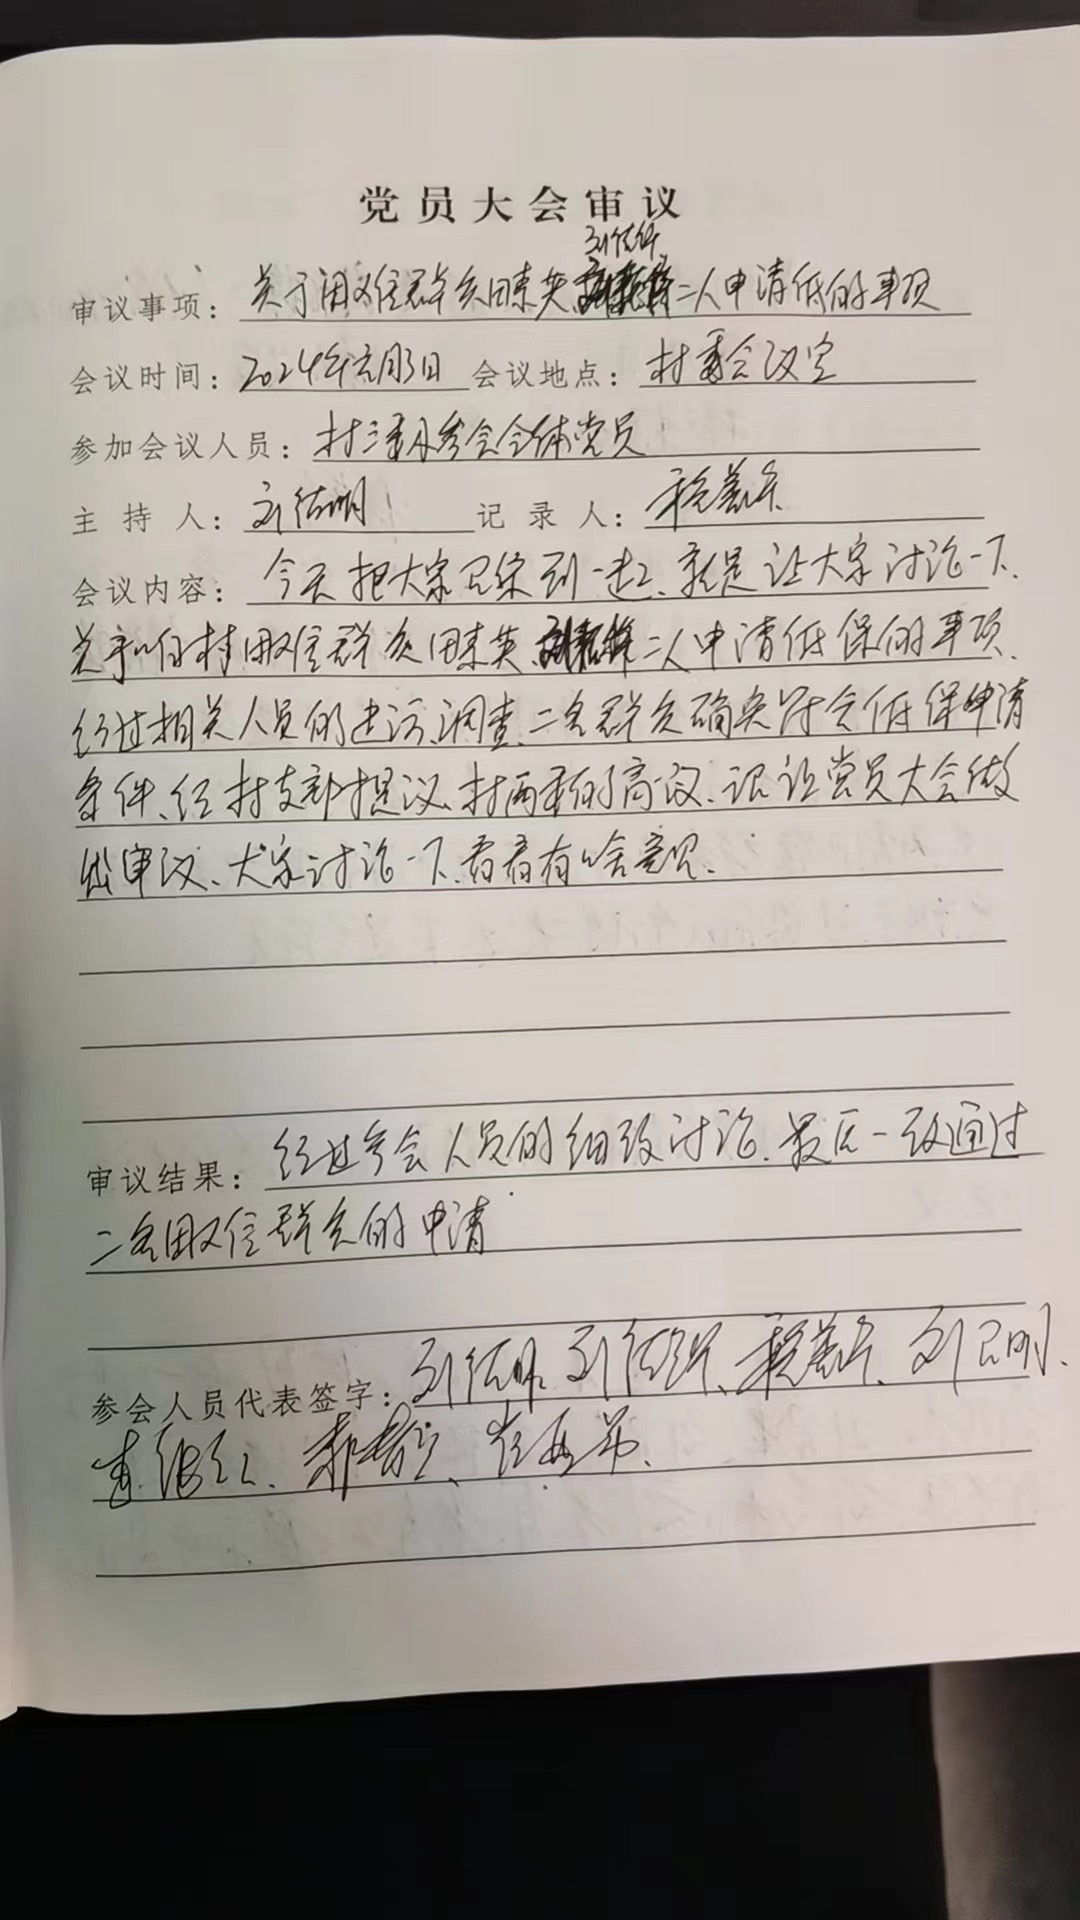 党员大会审议
审议事项：关于困难群众田素英、二人申请低的事项
会议时间：2024年元月3日 会议地点：村委会议室
参加会议人员：村三委及参会全体党员
主持人： 记录人：
会议内容：今天把大家召集到一起、就是让大家讨论一下、
关于咱村困难群众田素英、二人申请低保的事项、
经过相关人员的走访、调查、二名群众确实符合低保申请
条件、经村支部提议、村两委的商议、现让党员大会做
出审议、大家讨论一下、看看有啥意见、
审议结果：经过参会人员的细致讨论、最后一致通过
二名困难群众的申请
参会人员代表签字：